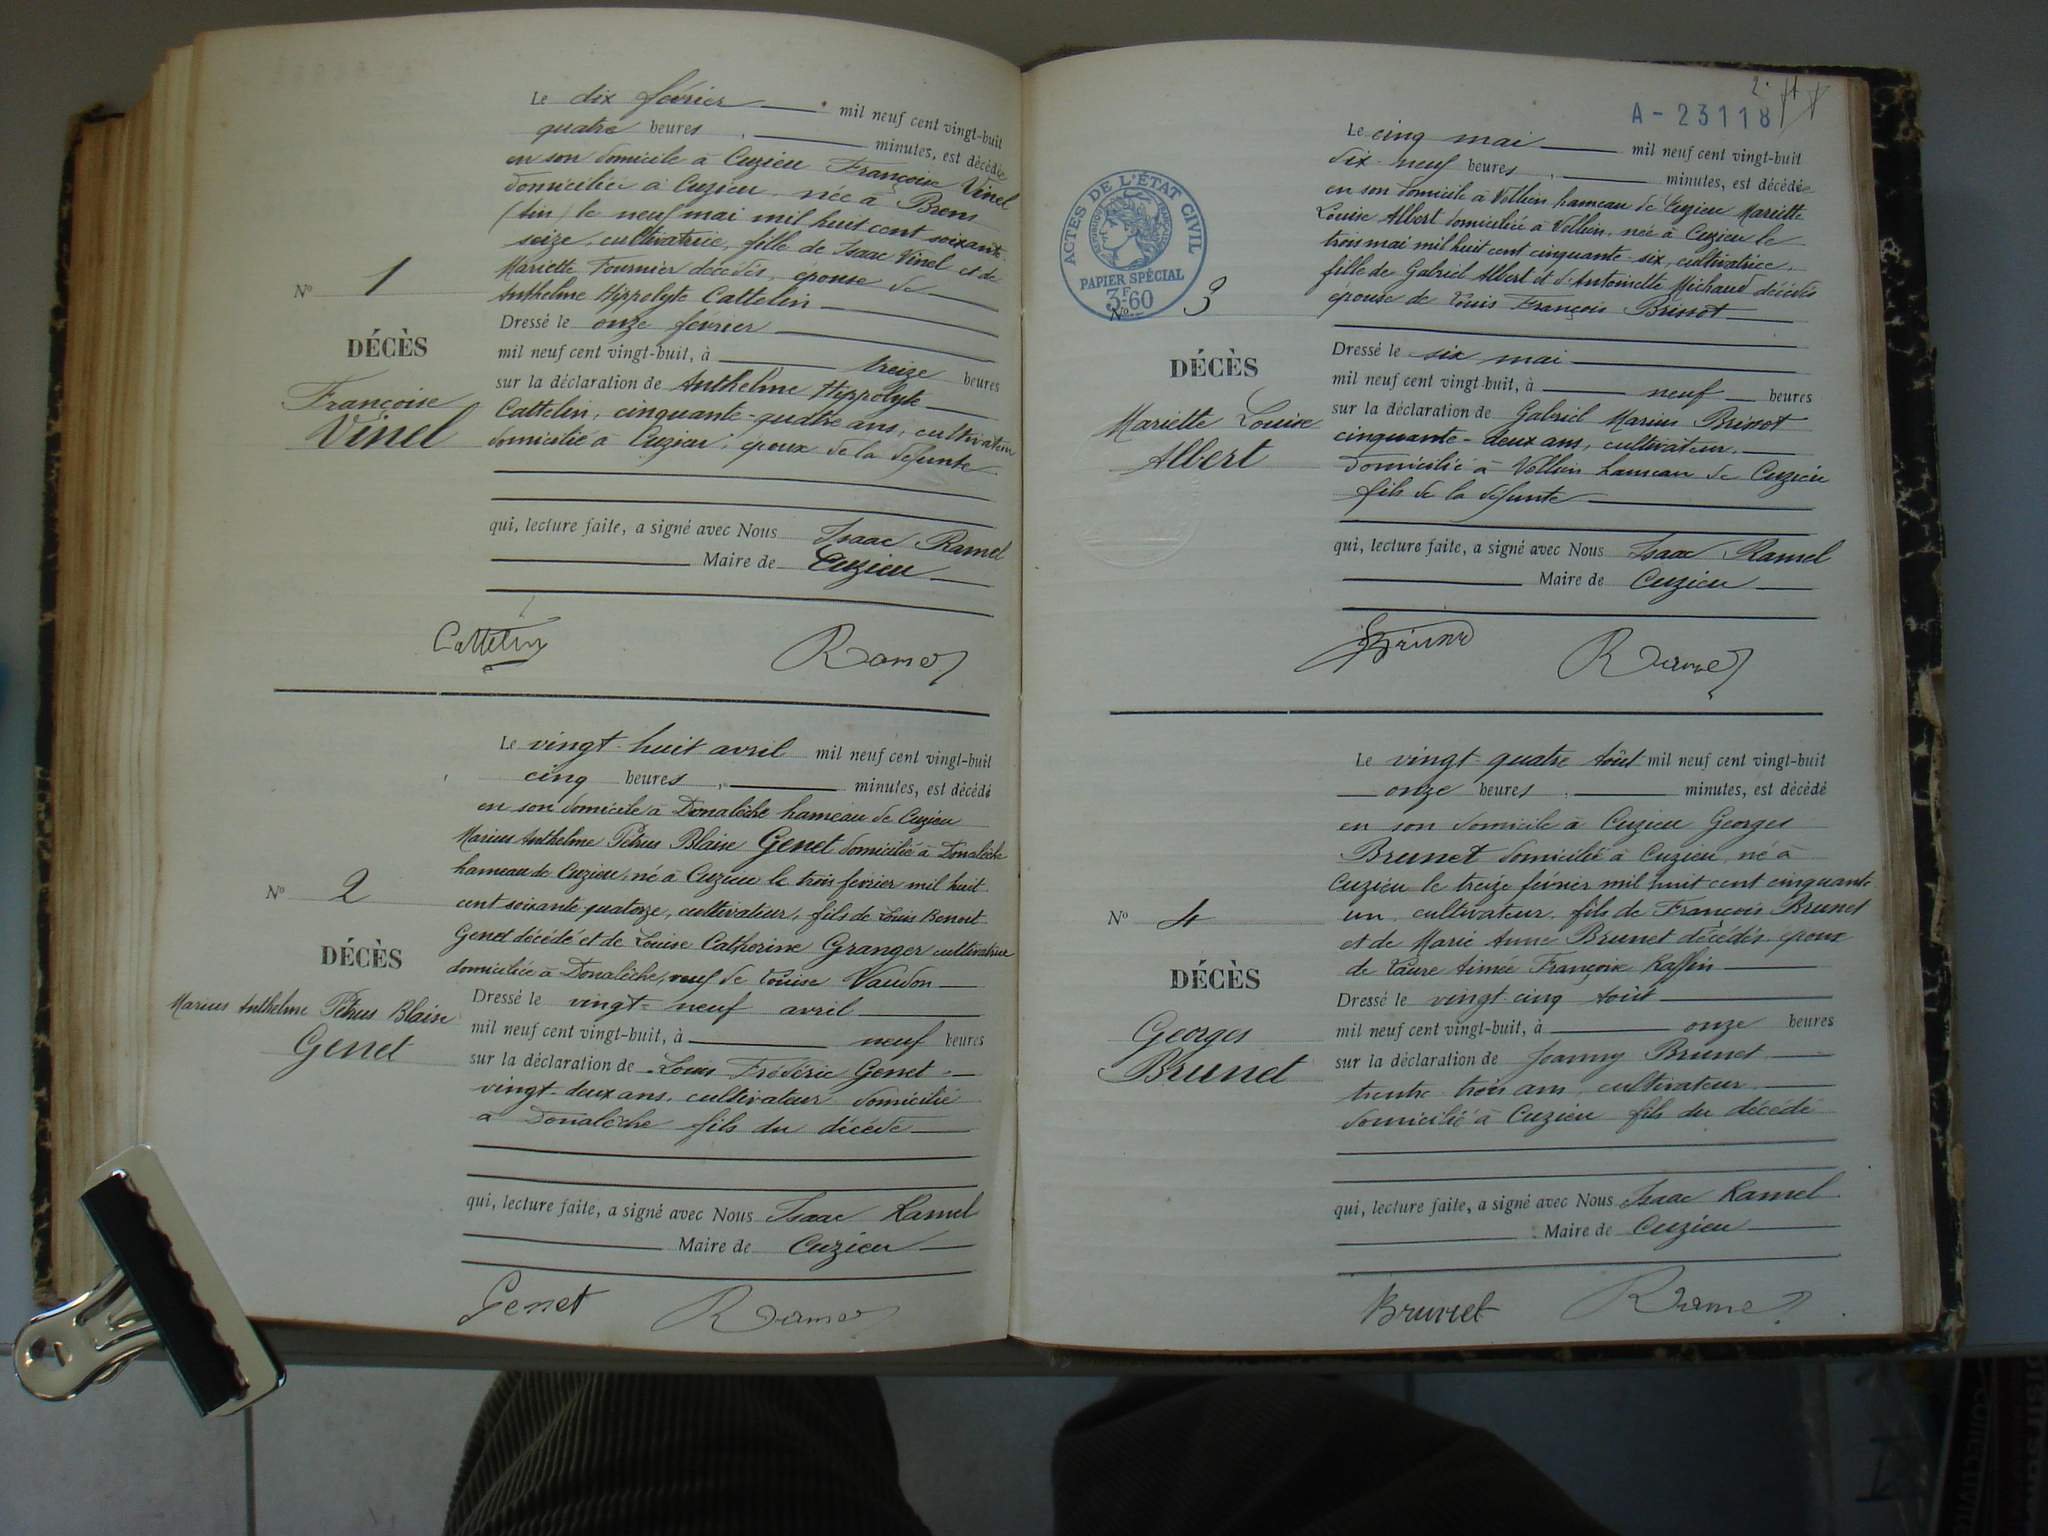 Le dix février mil neuf cent vingt-huit
quatre heures, minutes, est décédée
en son domicile à Cuzieu Françoise Vinel
domiciliée à Cuzieu, née à Brens
(Ain) le neuf mai mil huit cent soixante
seize, cultivatrice, fille de Isaac Vinel et de
Mariette Fournier décédés, épouse de
Anthelme Hippolyte Cattelin
N° 1
DÉCÈS
Françoise
Vinel
Dressé le onze février
mil neuf cent vingt-huit, à treize heures
sur la déclaration de Anthelme Hippolyte
Cattelin, cinquante-quatre ans, cultivateur
domicilié à Cuzieu, époux de la défunte
qui, lecture faite, a signé avec Nous Isaac Ramel
Maire de Cuzieu
Cattelin Ramel
Le vingt-huit avril mil neuf cent vingt-huit
cinq heures, minutes, est décédé
en son domicile à Donalèche hameau de Cuzieu
Marius Anthelme Pétrus Blaise Genet domicilié à Donalèche
hameau de Cuzieu, né à Cuzieu le trois février mil huit
cent soixante quatorze, cultivateur, fils de Louis Benoit
Genet décédé et de Louise Catherine Granger cultivatrice
domiciliée à Donalèche, veuf de Louise Vaudon
N° 2
DÉCÈS
Marius Anthelme Pétrus Blaise
Genet
Dressé le vingt-neuf avril
mil neuf cent vingt-huit, à neuf heures
sur la déclaration de Louis Frédéric Genet
vingt-deux ans, cultivateur domicilié
à Donalèche fils du décédé
qui, lecture faite, a signé avec Nous Isaac Ramel
Maire de Cuzieu
Genet Ramel
2.
A - 23118
ACTES DE L'ÉTAT CIVIL
RÉPUBLIQUE FRANÇAISE
PAPIER SPÉCIAL
3F.60
Le cinq mai mil neuf cent vingt-huit
dix-neuf heures, minutes, est décédée
en son domicile à Vollien hameau de Cuzieu Mariette
Louise Albert domiciliée à Vollien, née à Cuzieu le
trois mai mil huit cent cinquante-six, cultivatrice,
fille de Gabriel Albert et d'Antoinette Michaud décédés
épouse de Louis François Brissot
N° 3
DÉCÈS
Mariette Louise
Albert
Dressé le six mai
mil neuf cent vingt-huit, à neuf heures
sur la déclaration de Gabriel Marius Brissot
cinquante-deux ans, cultivateur,
domicilié à Vollien hameau de Cuzieu
fils de la défunte
qui, lecture faite, a signé avec Nous Isaac Ramel
Maire de Cuzieu
Ramel
Le vingt-quatre Août mil neuf cent vingt-huit
onze heures, minutes, est décédé
en son domicile à Cuzieu Georges
Brunet domicilié à Cuzieu, né à
Cuzieu le treize février mil huit cent cinquante
un, cultivateur, fils de François Brunet
et de Marie Anne Brunet décédés, époux
de Laure Aimée Françoise Raffin
N° 4
DÉCÈS
Georges
Brunet
Dressé le vingt-cinq Août
mil neuf cent vingt-huit, à onze heures
sur la déclaration de Joanny Brunet
trente-trois ans, cultivateur
domicilié à Cuzieu fils du décédé
qui, lecture faite, a signé avec Nous Isaac Ramel
Maire de Cuzieu
Brunet Ramel